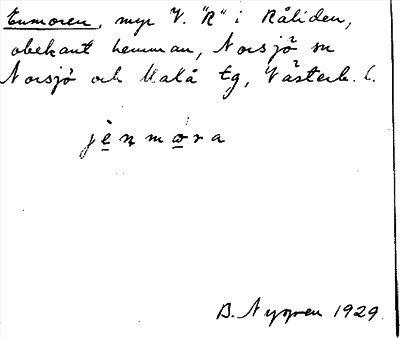 Enmoren, myr V. "R" i Råliden,
obekant hemman, Norsjö sn
Norsjö och Malå tg, Västerb. l.
jènmωra
B. Nygren 1929